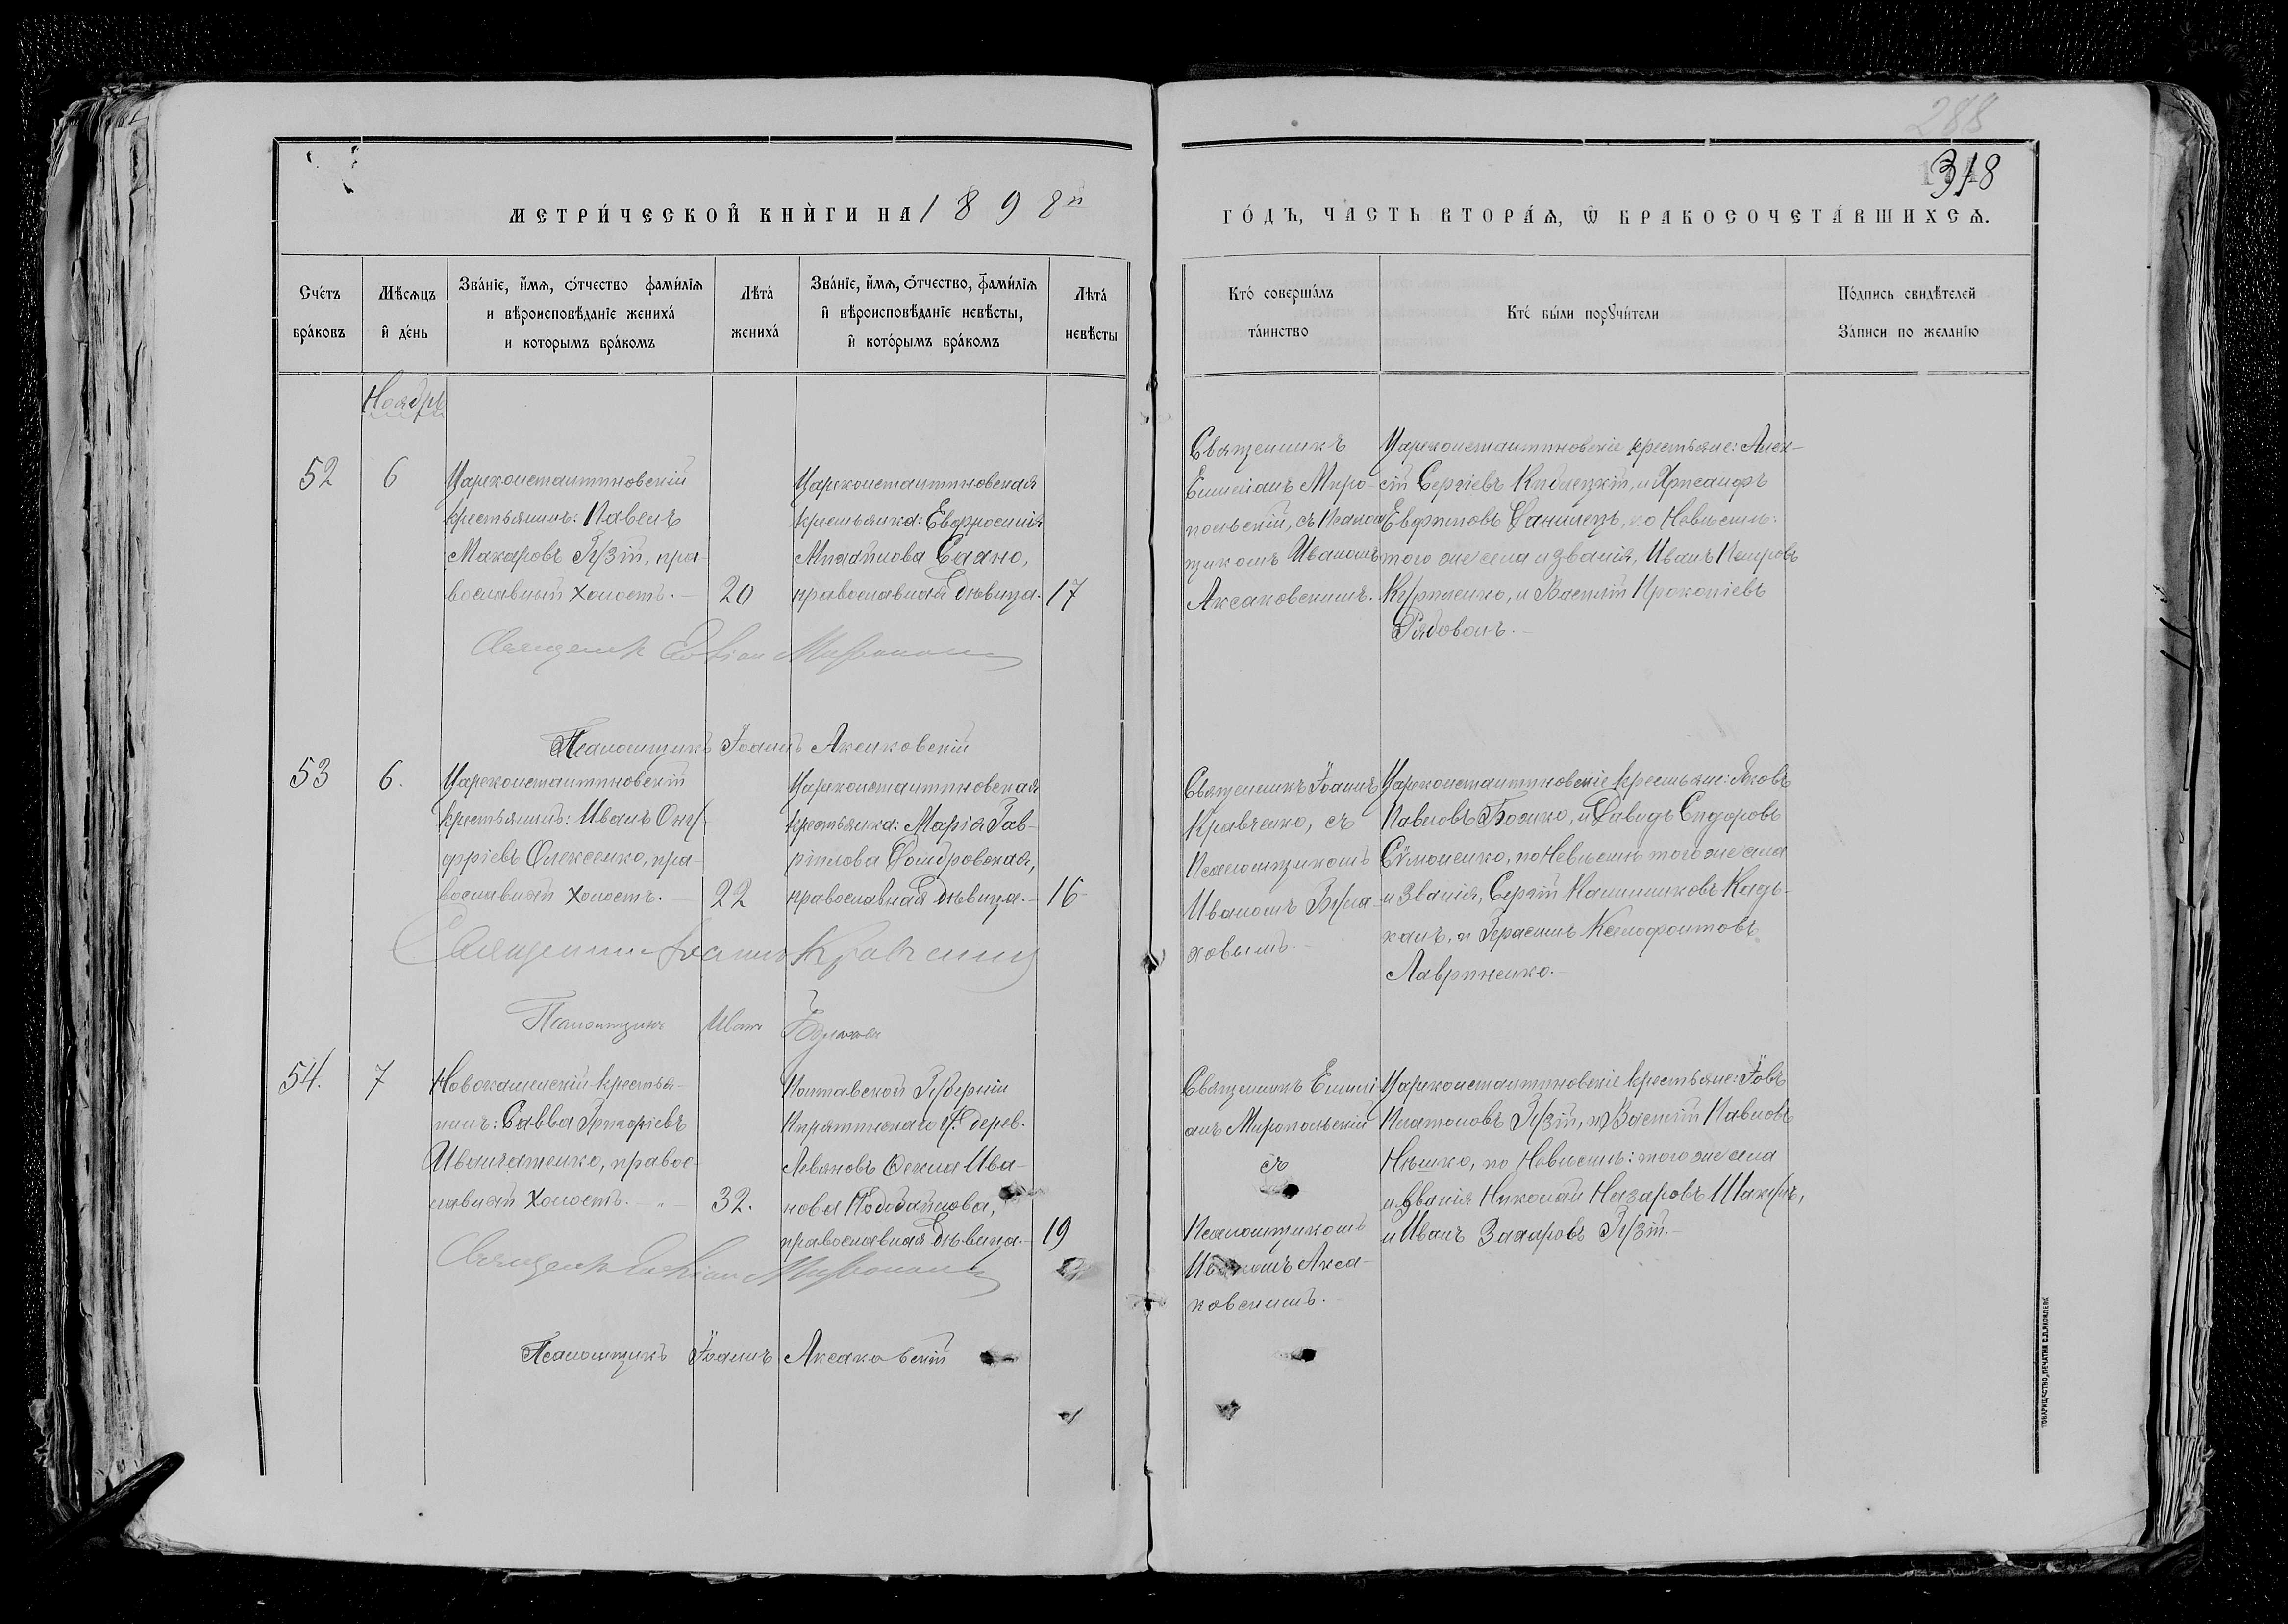 288
318
МЕТРИ́ЧЕСКОЙ КНИ́ГИ НА 1898й
ГО́ДЪ, ЧАСТЬ ВТОРА́Я, Ѡ БРАКОСОЧЕТА́ВШИХСЯ.
Сче́тъ
бра́ковъ
Мѣсяцъ
и҆ де́нь
Зва́нїе, и҆́мя, ѻ҆́тчество фами́лїя
и вѣроисповѣ́данїе жениха́
и которымъ бра́комъ
Лѣта́
жениха́
Зва́нїе, и҆́мя, ѻ҆́тчество, фами́лїя
и҆ вѣроисповѣ́данїе невѣ́сты,
и҆ кото́рымъ бра́комъ
Лѣта́
невѣ́сты
Кто́ соверша́лъ
та́инство
Кто́ бы́ли порꙋчи́тели
По́дпись свидѣ́телей
За́писи по жела́нїю
Ноябрь
52
6
Цареконстантиновскій
крестьянинъ: Павелъ
Макаровъ Гузій, пра-
вославный холостъ. —
20
Цареконстантиновская
крестьянка: Евфросинія
Саяно,
православная дѣвица.
17
Священникъ
Емиліанъ Миро-
польскій, съ Псалом
щикомъ Иваномъ
Аксаковскимъ.
Цареконстантиновскіе крестьяне: Алек-
сій Сергіевъ и Хрисанфъ
Евфимовъ Данилецъ, по Невѣстѣ:
того же села и званія, Иванъ Петровъ
Куриленко, и Василій Прокопіевъ
Рядоволъ. —
Священник Емиліан Миропольскій
Псаломщикъ Іоаннъ Аксаковскій
53
6.
Цареконстантиновскій
крестьянинъ: Иванъ Ону-
фріевъ Олексенко, пра-
вославный холостъ. —
22
Цареконстантиновская
крестьянка: Марія Гав-
ріилова Домбровская,
православная дѣвица. —
16
Священникъ Іоаннъ
Кравченко, съ
Псаломщикомъ
Иваномъ Була-
ховымъ. —
Цареконстантиновскіе крестьяне: Яковъ
Павловъ Божко, и Давидъ Сидоровъ
Сѵмоненко, по Невѣстѣ того же села
и званія, Сергій Каллиниковъ Кадь-
канъ, и Герасимъ Ксенофонтовъ
Лавриненко. —
Священникъ Іоаннъ Кравченко
Псаломщикъ Иванъ Булаховъ
54.
7
Новокаменскій крестья-
нинъ: Савва Григоріевъ
Иванчатенко, правос-
лавный холостъ. — „ —
32.
Полтавской Губерніи
Пирятинскаго У. дерев.
Левяновъ Ѳекла Ива-
нова
православная дѣвица. —
19
Священникъ Емилі
анъ Миропольскій
съ
Псаломщикомъ
Иваномъ Акса-
ковскимъ.
Цареконстантиновскіе крестьяне: Іовъ
Платоновъ Гузій, и Василій Павловъ
Нѣшко, по Невѣстѣ: того же села
и званія Николай Назаровъ
и Иванъ Захаровъ Гузій. —
Священник Емиліан Миропольскій
Псаломщикъ Іоаннъ Аксаковскій